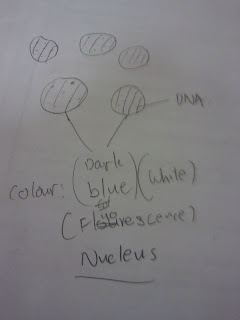 DNA
Colour: (Dark blue) (White)
(Fluorescence)
Nucleus